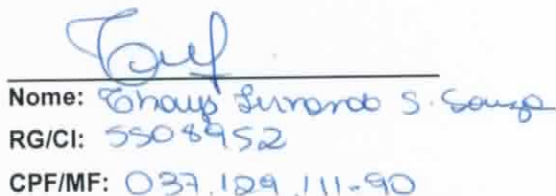 Nome: Thays Fernando S. Souza
RG/CI: 5508952
CPF/MF: 037.129.111-90